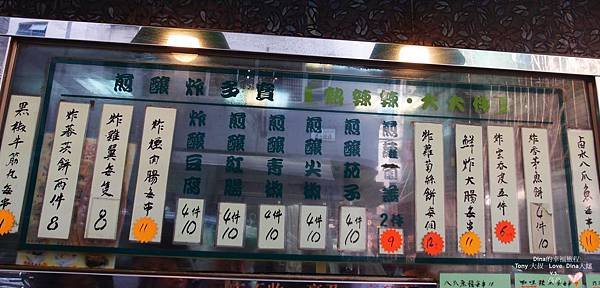 煎釀炸多寶 [熱辣辣·大大件]
黑椒牛筋丸每串
炸番茨餅兩件 8
炸雞翼每隻 8
炸燻肉腸每串 11
炸釀豆腐 4件 10
煎釀紅腸 4件 10
煎釀青椒 4件 10
煎釀尖椒 4件 10
煎釀茄子 4件 10
煎蘿蔔糕 2件 9
炸蘿蔔絲餅每個 12
鮮炸大腸每串 11
炸雲吞皮五件
炸香茅魚餅 4件 10
鹵水八爪魚每串 11
八爪魚每串 11
Dina的幸福旅程
Tony 大叔 Love Dina大嬸